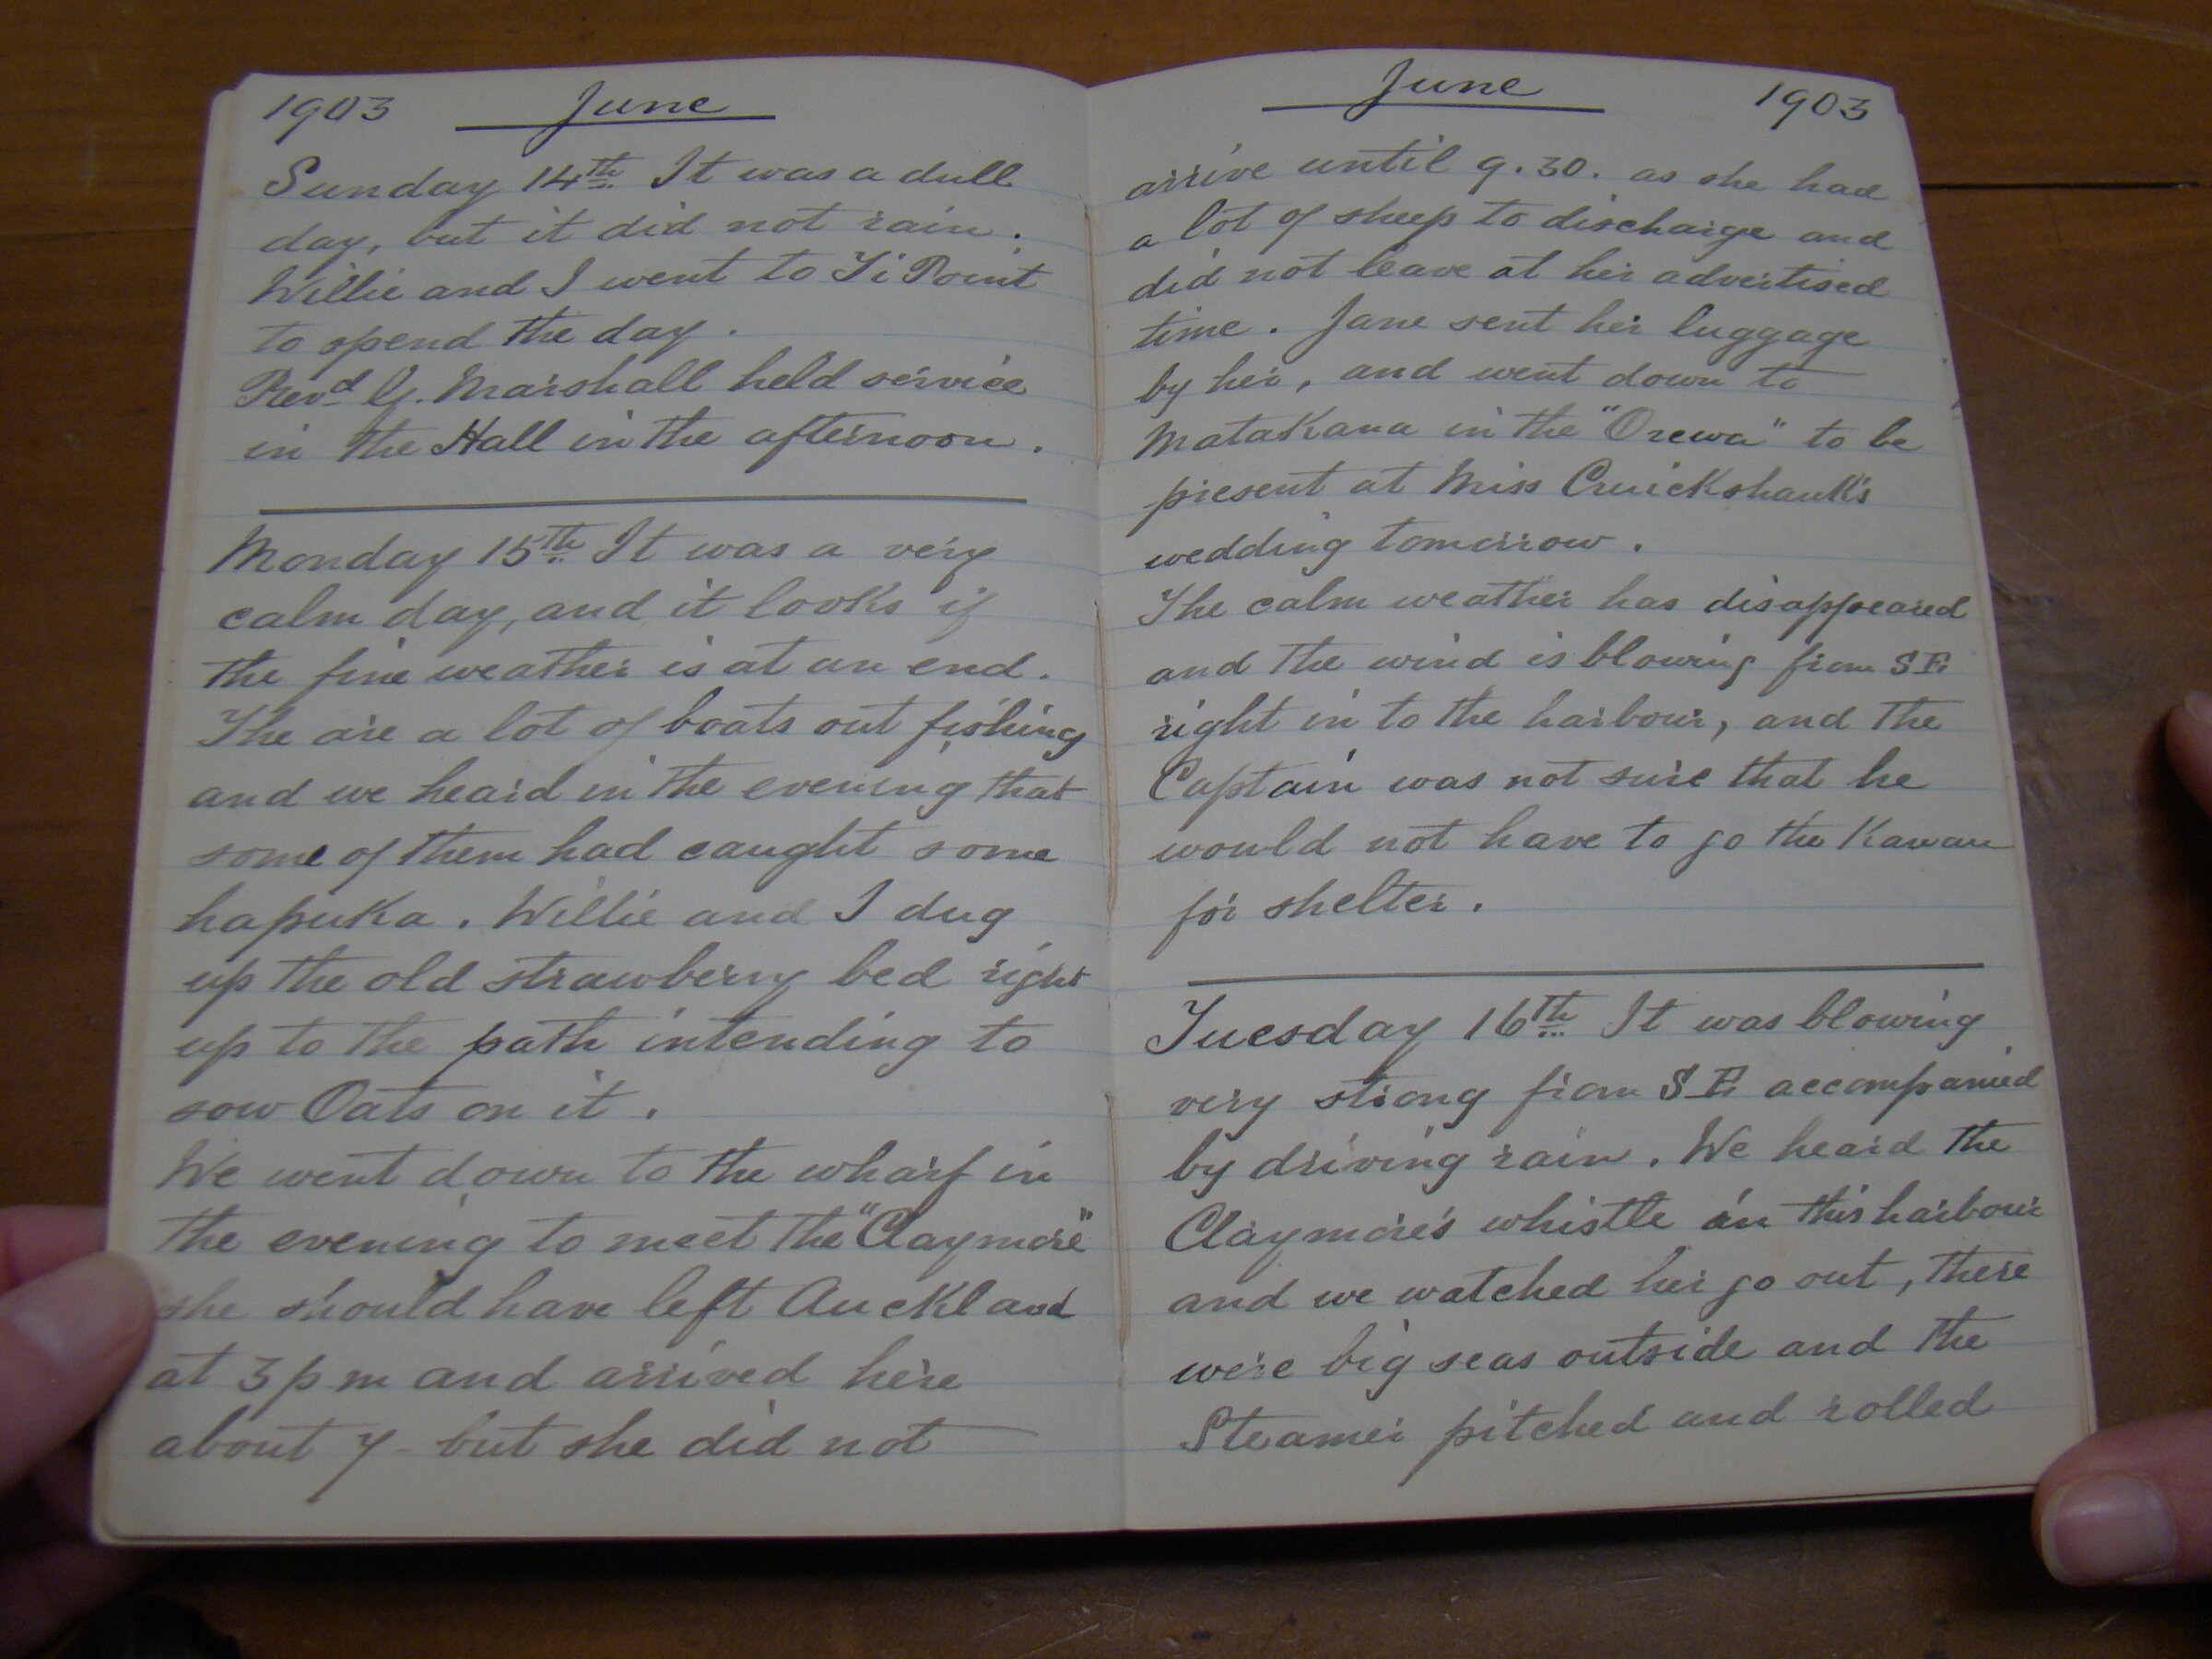 1903 June
Sunday 14th It was a dull
day, but it did not rain.
Willie and I went to Ti Point
to spend the day.
Revd G. Marshall held service
in the Hall in the afternoon.
Monday 15th It was a very
calm day, and it looks if
the fine weather is at an end.
The are a lot of boats out fishing
and we heard in the evening that
some of them had caught some
hapuka. Willie and I dug
up the old strawberry bed right
up to the path intending to
sow Oats on it.
We went down to the wharf in
the evening to meet the "Claymore"
she should have left Auckland
at 3 pm and arrived here
about 7 - but she did not
June 1903
arrive until 9.30. as she had
a lot of sheep to discharge and
did not leave at her advertised
time. Jane sent her luggage
by her, and went down to
Matakana in the "Orewa" to be
present at Miss Cruickshank's
wedding tomorrow.
The calm weather has disappeared
and the wind is blowing from SE
right in to the harbour, and the
Captain was not sure that he
would not have to go the Kawau
for shelter.
Tuesday 16th It was blowing
very strong from SE accompanied
by driving rain. We heard the
Claymore's whistle in this harbour
and we watched her go out, there
were big seas outside and the
Steamer pitched and rolled